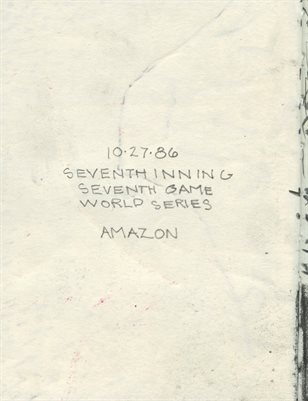 10·27·86
SEVENTH INNING
SEVENTH GAME
WORLD SERIES
AMAZON